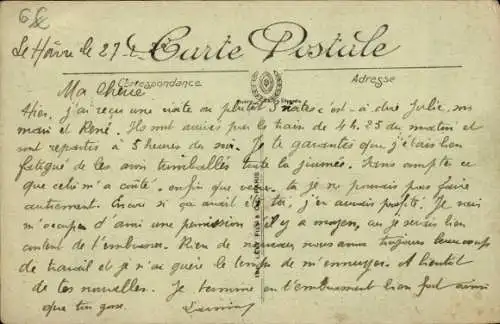 Carte Postale
Le Hâvre le 27
Correspondance
Adresse
Ma Chérie
Hier, j'ai reçu une visite ou plutôt 3 visites c'est-à-dire Julie, son
mari et René. Ils sont arrivés par le train de 4h.25 du matin et
sont repartis à 5 heures du soir. Je te garantis que j'étais bien
fatigué de les avoir trimballés toute la journée. Sans compter ce
que cela m'a coûté. enfin que veux-tu je ne pouvais pas faire
autrement. Encore si ça avait été toi, j'en aurais profité. Je vais
m'occuper d'avoir une permission s'il y a moyen, car je serais bien
content de t'embrasser. Rien de nouveau nous avons toujours beaucoup
de travail et je n'ai guère le temps de m'ennuyer. A bientôt
de tes nouvelles. Je termine en t'embrassant bien fort ainsi
que ton gosse.